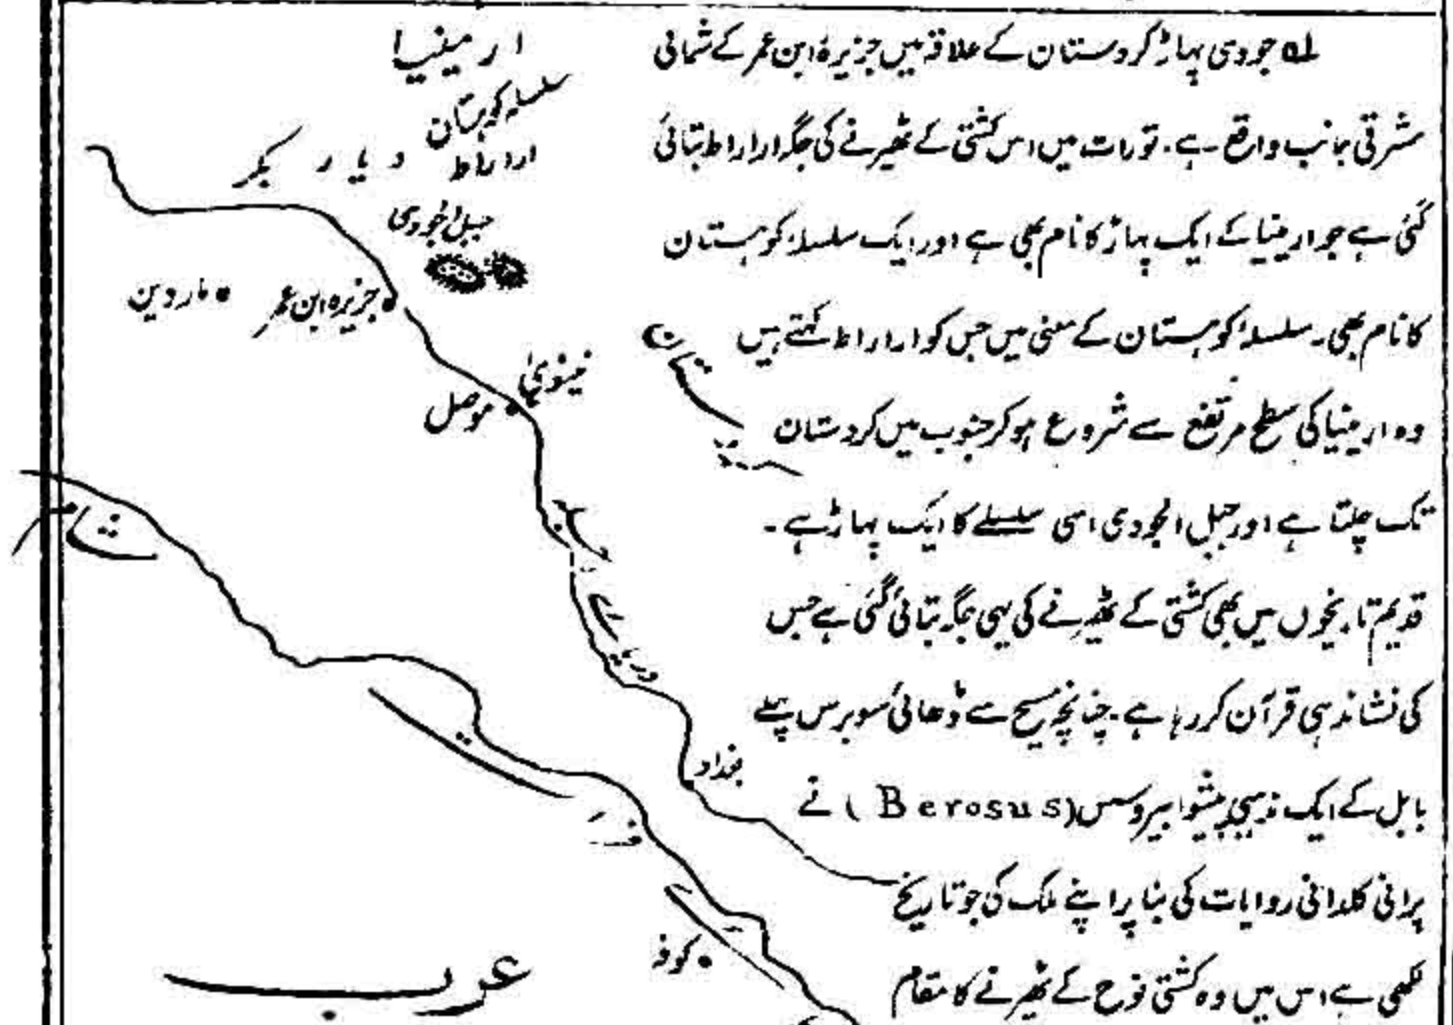 لہ جودی پہاڑ کردستان کے علاقہ میں جزیرۂ ابن عمر کے شمالی
مشرقی جانب واقع ہے۔ تورات میں اس کشتی کے ٹھیرنے کی جگہ اراراط بتائی
گئی ہے جو ارمینیا کے ایک پہاڑ کا نام بھی ہے اور ایک سلسلۂ کوہستان
کا نام بھی۔ سلسلۂ کوہستان کے معنی میں جس کو اراراط کہتے ہیں
وہ ارمینیا کی سطح مرتفع سے شروع ہو کر جنوب میں کردستان
تک چلتا ہے اور جبل الجودی اسی سلسلے کا ایک پہاڑ ہے۔
قدیم تاریخوں میں بھی کشتی کے ٹھیرنے کی یہی جگہ بتائی گئی ہے جس
کی نشاندہی قرآن کر رہا ہے۔ چنانچہ مسیح سے ڈھائی سو برس پہلے
بابل کے ایک مذہبی پیشوا بیروسس (Berosus) نے
پرانی کلدانی روایات کی بنا پر اپنے ملک کی جو تاریخ
لکھی ہے اس میں وہ کشتی نوح کے ٹھیرنے کا مقام
ارمینیا
سلسلہ کوہستان
اراراط
دیار بکر
جبل الجودی
جزیرہ ابن عمر
ماردین
نینویٰ
موصل
کردستان
شام
دریائے
بغداد
کوفہ
عرب